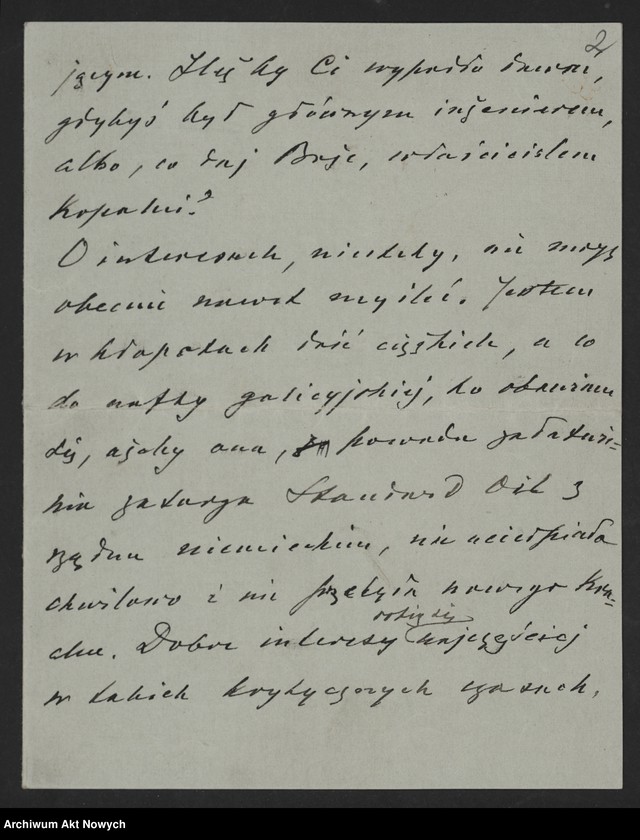 2
jącym. Ileż by Ci wypadło dawać,
gdybyś był głównym inżynierem,
albo, co daj Boże, właścicielem
Kopalni?
O interesach, niestety, nie mogę
obecnie nawet myśleć. Jestem
w kłopotach dość ciężkich, a co
do nafty galicyjskiej, to obawiam
się, ażeby ona, z powodu załatwie-
nia zatargu Standard Oil z
rządem niemieckim, nie ucierpiała
chwilowo i nie przebyła nowego Kra-
chu. Dobre interesy robią się najczęściej
w takich krytycznych czasach,
Archiwum Akt Nowych